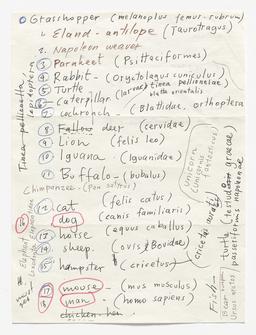 0 Grasshopper (melanoplus femur-rubrum)
1. Eland - antilope (Taurotragus)
2. Napoleon weaver
3 Parakeet (Psittaciformes)
4 Rabbit - (Oryctolagus cuniculus)
5 Turtle
6 caterpillar (larvae) tinea pellionella
blatta orientalis
7 cockronch - (Blattidae, orthoptera
8 Fallow deer (cervidae)
9 Lion (felis leo)
10 Iguana (Iguanidae)
11 Buffalo - (bubalus)
Chimpanzee - (Pan satyrus)
12 cat (felis catus)
16 dog (canis familiaris)
13 horse (equus caballus)
14 sheep. (ovis) Bovidae)
15 hampster (cricetus)
17 mouse - (mus musculus)
18 man - homo sapiens
chicken - hen
Tinea pellionella,
lepidoptera
Elephant
unicorn
turtle (testudo graeca,
passeriformes, napoleonae
Fish -
Ursus arctos